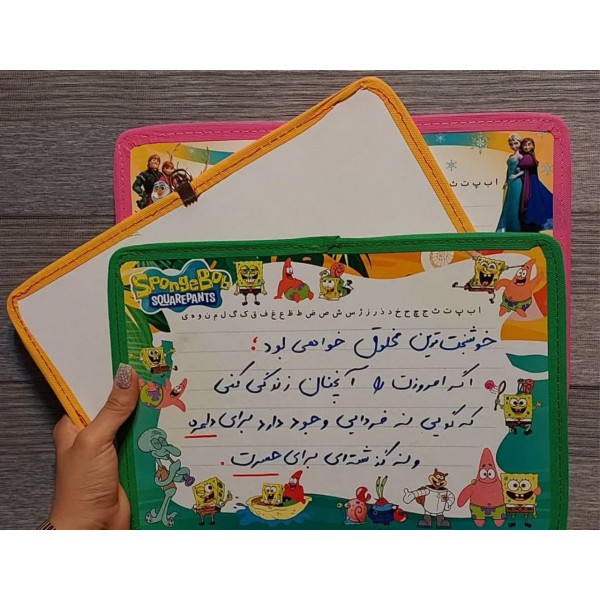 ا ب پ ت ث
SpongeBob
SQUAREPANTS
ا ب پ ت ث ج چ ح خ د ذ ر ز ژ س ش ص ض ط ظ ع غ ف ق ک گ ل م ن و ه ی
خوشبخت‌ترین مخلوق خواهی بود ؛
اگر امروزت را آنچنان زندگی کنی
که گویی نه فردایی وجود دارد برای دلهره
و نه گذشته‌ای برای حسرت .